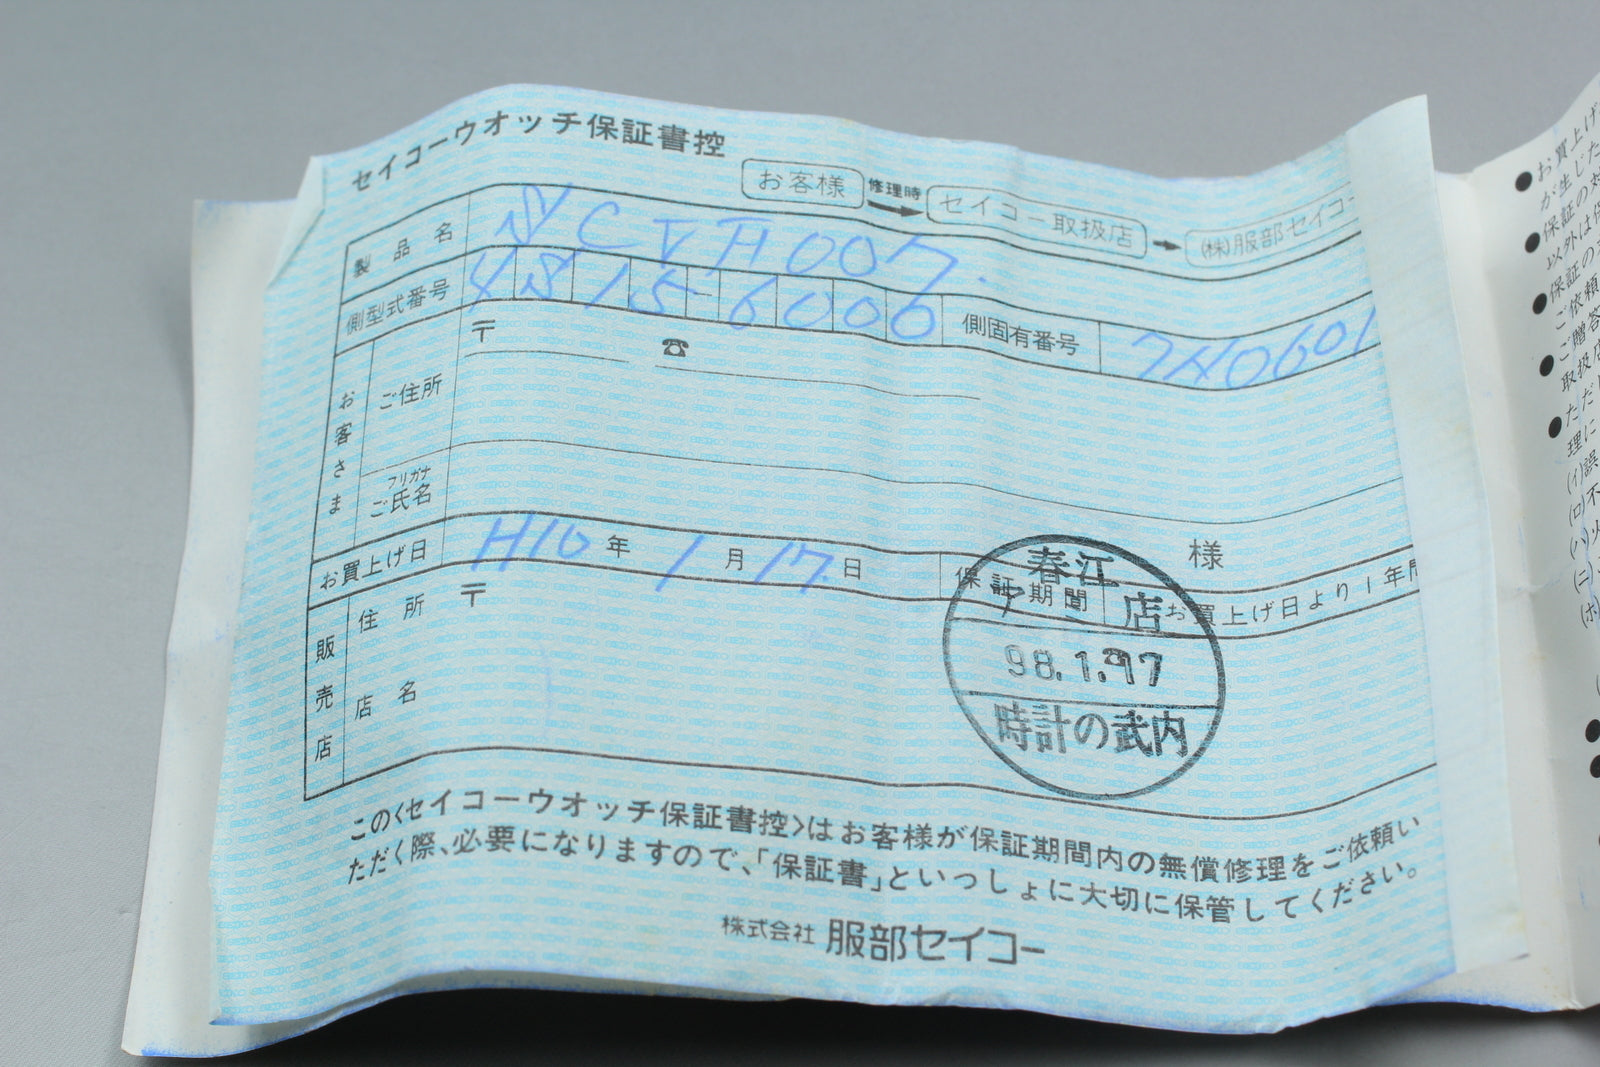 セイコーウオッチ保証書控
お客様 修理時 セイコー取扱店 (株)服部セイコー
製品名 SCVH007.
側型式番号 4S15-6006 側固有番号 7N0601
お客さま
ご住所 〒 ☎
フリガナ
ご氏名 様
お買上げ日 H10年 1月17日 保証期間 お買上げ日より1年間
販売店
住所 〒
店名
春江
店
98.1.17
時計の武内
このくセイコーウオッチ保証書控>はお客様が保証期間内の無償修理をご依頼い
ただく際、必要になりますので、「保証書」といっしょに大切に保管してください。
株式会社 服部セイコー
●お買上げ
が生じた
●保証の対
以外は保
●保証の
ご依頼
●ご贈答
取扱店
●ただし
理に
(イ)誤
(ロ)不
(ハ)火
(ニ)
(ホ)